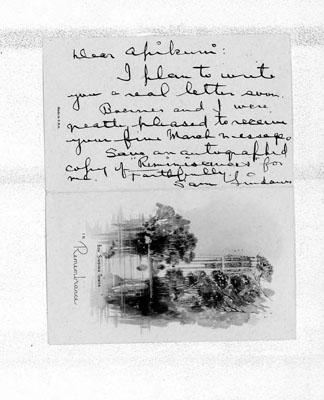 Dear Apikuni:
I plan to write
you a real letter soon.
and I were
pleased to receive
your fine March message.
Save an autographed
copy of "Reminiscences" for
me. Faithfully,
Sam
In
Remembrance